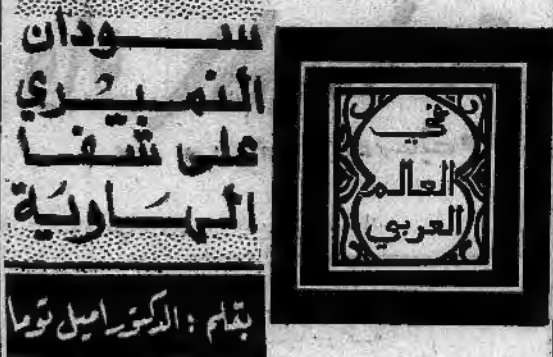 في
العالم
العربي
ســودان
النمــيري
على شفــا
الهــاوية
بقلم : الدكتور اميل توما